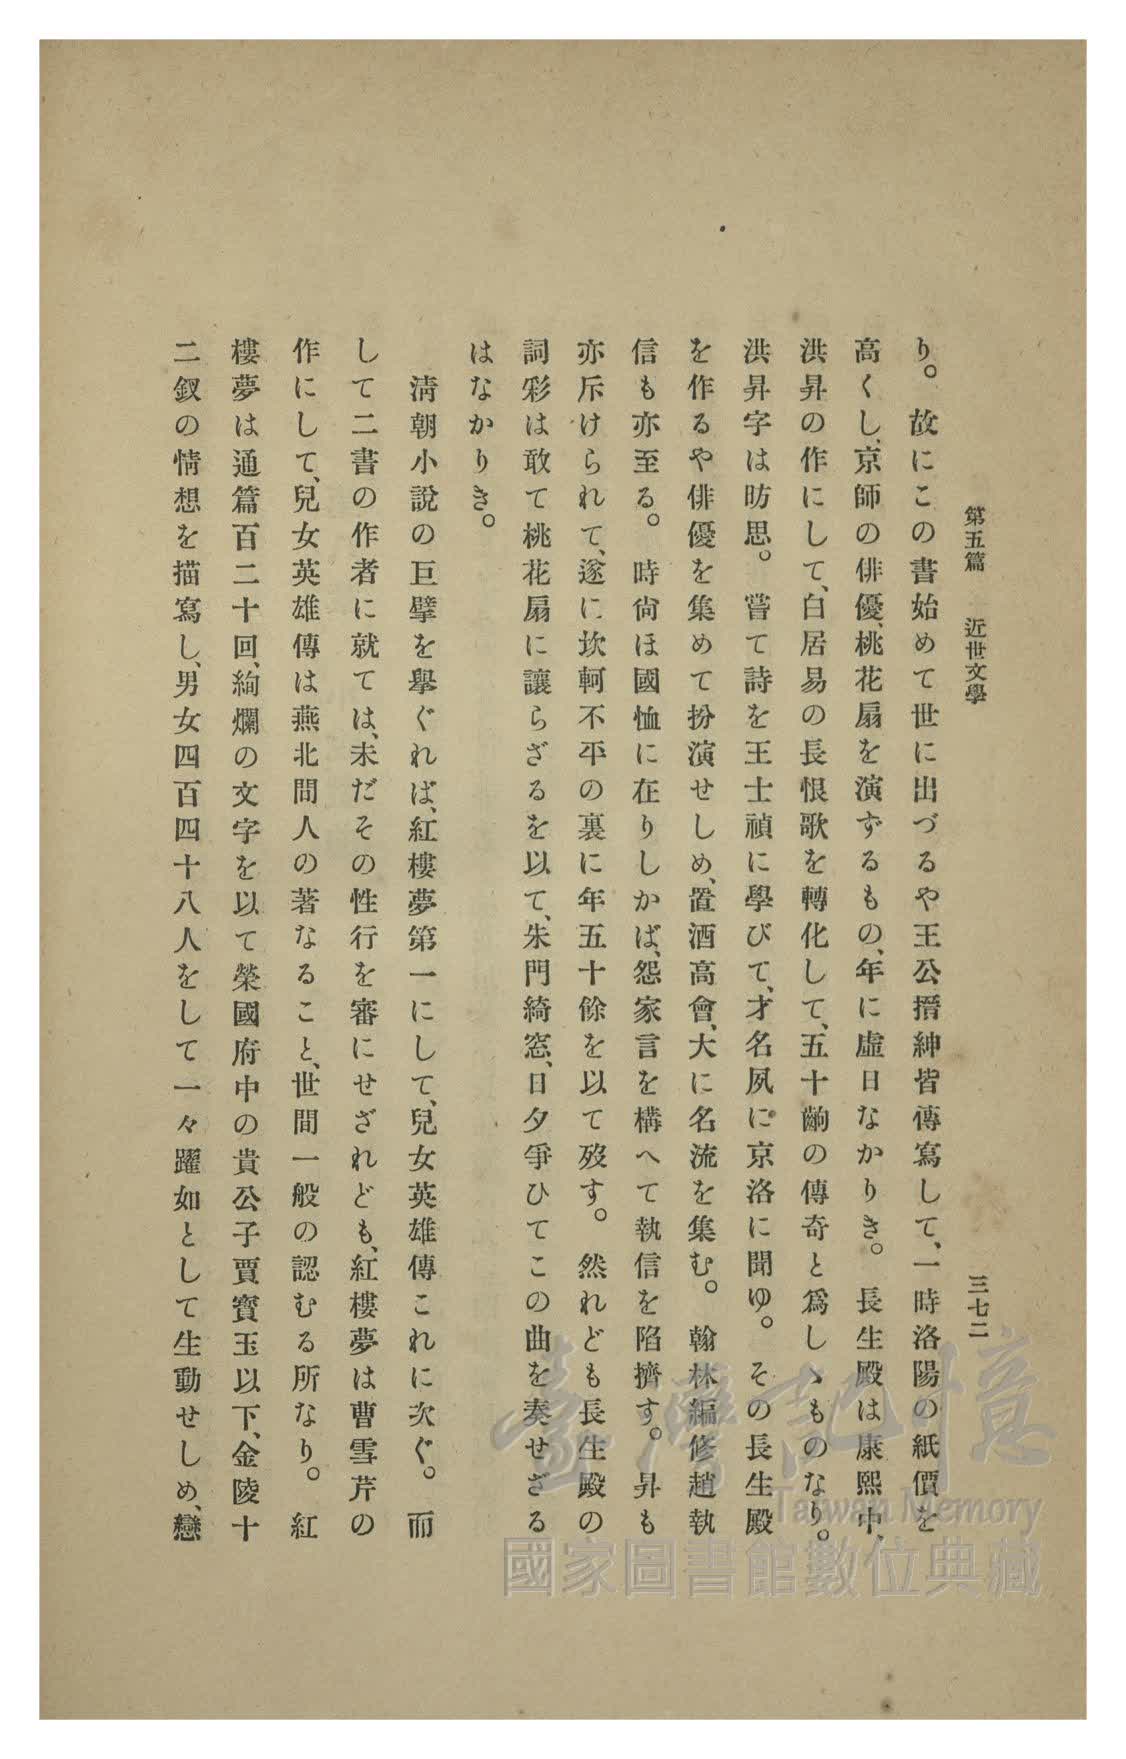 第五篇 近世文學 三七二
り。故にこの書始めて世に出づるや王公搢紳皆傳寫して、一時洛陽の紙價を
高くし、京師の俳優、桃花扇を演ずるもの、年に虛日なかりき。長生殿は康熙中、
洪昇の作にして、白居易の長恨歌を轉化して、五十齣の傳奇と爲しゝものなり。
洪昇字は昉思。嘗て詩を王士禎に學びて、才名夙に京洛に聞ゆ。その長生殿
を作るや俳優を集めて扮演せしめ、置酒高會、大に名流を集む。翰林編修趙執
信も亦至る。時尙ほ國恤に在りしかば、怨家言を構へて執信を陷擠す。昇も
亦斥けられて、遂に坎軻不平の裏に年五十餘を以て歿す。然れども長生殿の
詞彩は敢て桃花扇に讓らざるを以て、朱門綺窓、日夕爭ひてこの曲を奏せざる
はなかりき。
淸朝小說の巨擘を擧ぐれば、紅樓夢第一にして、兒女英雄傳これに次ぐ。而
して二書の作者に就ては、未だその性行を審にせざれども、紅樓夢は曹雪芹の
作にして、兒女英雄傳は燕北閒人の著なること、世間一般の認むる所なり。紅
樓夢は通篇百二十回、絢爛の文字を以て榮國府中の貴公子賈寶玉以下、金陵十
二釵の情想を描寫し、男女四百四十八人をして一々躍如として生動せしめ、戀
臺灣記憶
Taiwan Memory
國家圖書館數位典藏